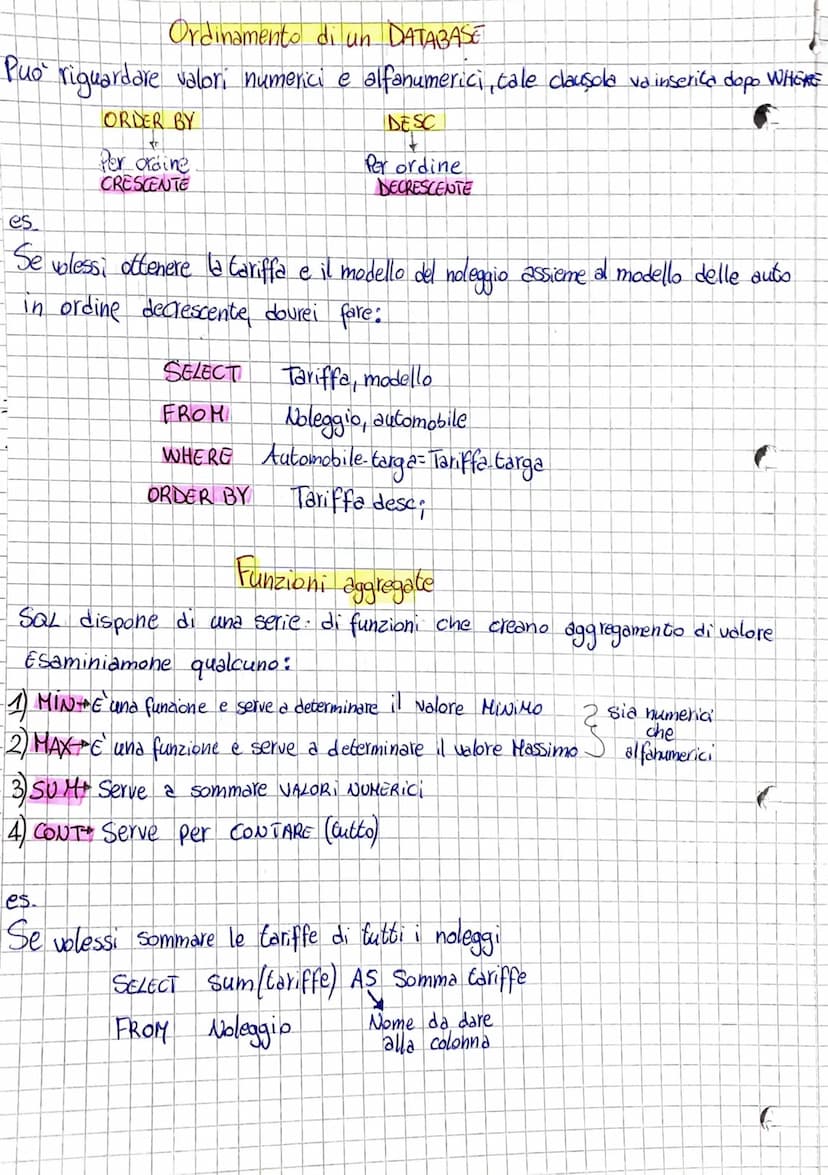 Ordinamento di un DATABASE
Può riguardare valori numerici e alfanumerici, tale clausola va inserita dopo WHERE
ORDER BY DESC
Per ordine Per ordine
CRESCENTE DECRESCENTE
es.
Se volessi ottenere la tariffa e il modello del noleggio assieme al modello delle auto
in ordine decrescente, dovrei fare:
SELECT Tariffa, modello
FROM Noleggio, automobile
WHERE Automobile.targa=Tariffa.targa
ORDER BY Tariffa desc;
Funzioni aggregate
SQL dispone di una serie di funzioni che creano aggregamento di valore
Esaminiamone qualcuno:
1) MIN→È una funzione e serve a determinare il valore MINIMO
2) MAX→È una funzione e serve a determinare il valore Massimo
sia numerici
che
alfanumerici
3) SUM→ Serve a sommare VALORI NUMERICI
4) CONT→ Serve per CONTARE (tutto)
es.
Se volessi sommare le tariffe di tutti i noleggi
SELECT sum(tariffe) AS Somma tariffe
FROM Noleggio
Nome da dare
alla colonna